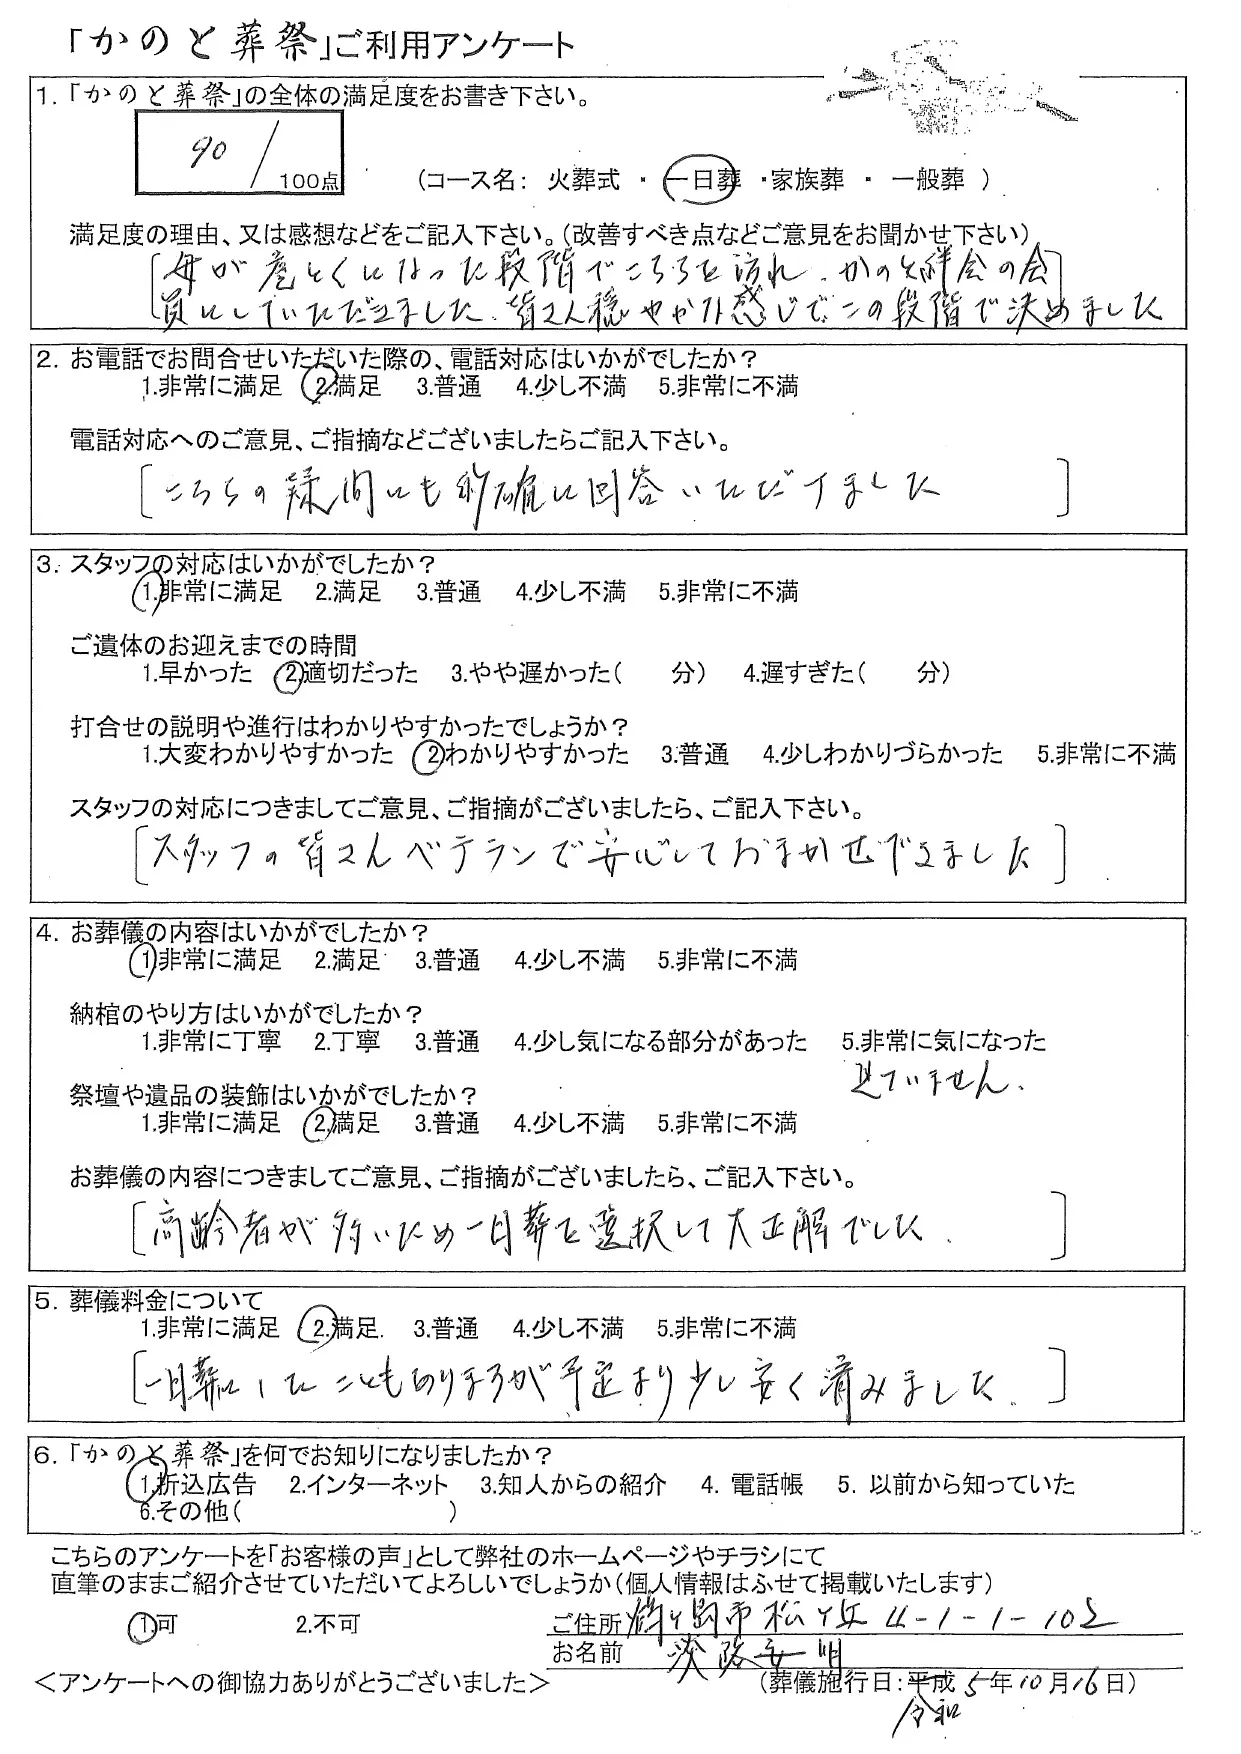 「かのと葬祭」ご利用アンケート
1.「かのと葬祭」の全体の満足度をお書き下さい。
90/100点
(コース名: 火葬式 ・ 一日葬 ・家族葬 ・ 一般葬 )
満足度の理由、又は感想などをご記入下さい。(改善すべき点などご意見をお聞かせ下さい)
母が危とくになった段階でこちらを訪れ、かのと絆会の会
員にしていただきました。皆さん穏やかな感じでこの段階で決めました
2. お電話でお問合せいただいた際の、電話対応はいかがでしたか?
1.非常に満足 2.満足 3.普通 4.少し不満 5.非常に不満
電話対応へのご意見、ご指摘などございましたらご記入下さい。
こちらの疑問にも的確に回答いただけました
3. スタッフの対応はいかがでしたか?
1.非常に満足 2.満足 3.普通 4.少し不満 5.非常に不満
ご遺体のお迎えまでの時間
1.早かった 2.適切だった 3.やや遅かった( 分) 4.遅すぎた( 分)
打合せの説明や進行はわかりやすかったでしょうか?
1.大変わかりやすかった 2.わかりやすかった 3.普通 4.少しわかりづらかった 5.非常に不満
スタッフの対応につきましてご意見、ご指摘がございましたら、ご記入下さい。
スタッフの皆さんベテランで安心しておまかせできました
4. お葬儀の内容はいかがでしたか?
1.非常に満足 2.満足 3.普通 4.少し不満 5.非常に不満
納棺のやり方はいかがでしたか?
1.非常に丁寧 2.丁寧 3.普通 4.少し気になる部分があった 5.非常に気になった
見ていません.
祭壇や遺品の装飾はいかがでしたか?
1.非常に満足 2.満足 3.普通 4.少し不満 5.非常に不満
お葬儀の内容につきましてご意見、ご指摘がございましたら、ご記入下さい。
高齢者が多いため一日葬を選択して大正解でした.
5. 葬儀料金について
1.非常に満足 2.満足 3.普通 4.少し不満 5.非常に不満
一日葬にしたこともありますが予定より少し安く済みました.
6.「かのと葬祭」を何でお知りになりましたか?
1.折込広告 2.インターネット 3.知人からの紹介 4. 電話帳 5. 以前から知っていた
6.その他( )
こちらのアンケートを「お客様の声」として弊社のホームページやチラシにて
直筆のままご紹介させていただいてよろしいでしょうか(個人情報はふせて掲載いたします)
1.可 2.不可
ご住所 鶴ヶ島市松ヶ丘4-1-1-102
お名前 淡路安明
<アンケートへの御協力ありがとうございました>
(葬儀施行日:平成5年10月16日)
令和